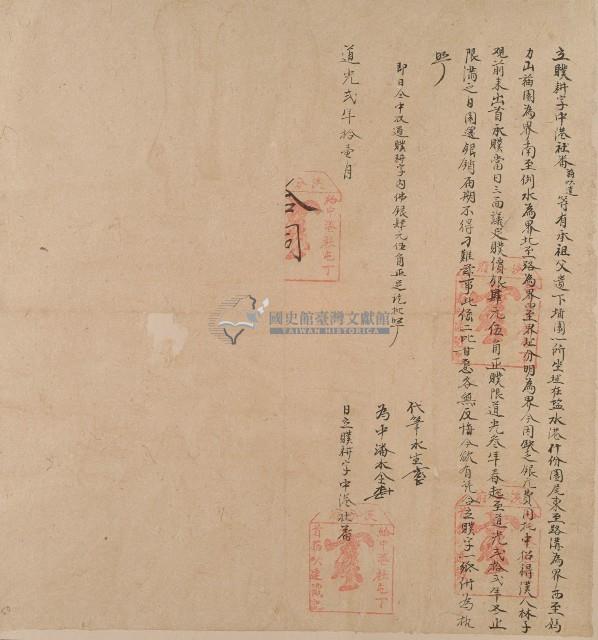 立贌耕字中港社番等有承祖父遺下埔園一所坐址在塩水港什份園尾東至路溝為界西至媽
力山猫園為界南至倒水為界北至路為界四至界址分明為界今因乏銀元費用托中招得漢人林子
觀前來出首承贌當日三面議定贌價銀肆元伍角正贌限道光叁年春起至道光弍拾弍年冬止
限滿之日園還銀銷屆期不得刁難等事此係二比甘愿各無反悔今欲有凭合立贌字一紙付為执
照
即日仝中收過贌耕字內佛銀肆元伍角正足訖批照
道光弍年拾壹月
合同
代筆
為中
日立贌耕字中港社番
給中港社屯丁
國史館臺灣文獻館
TAIWAN HISTORICA